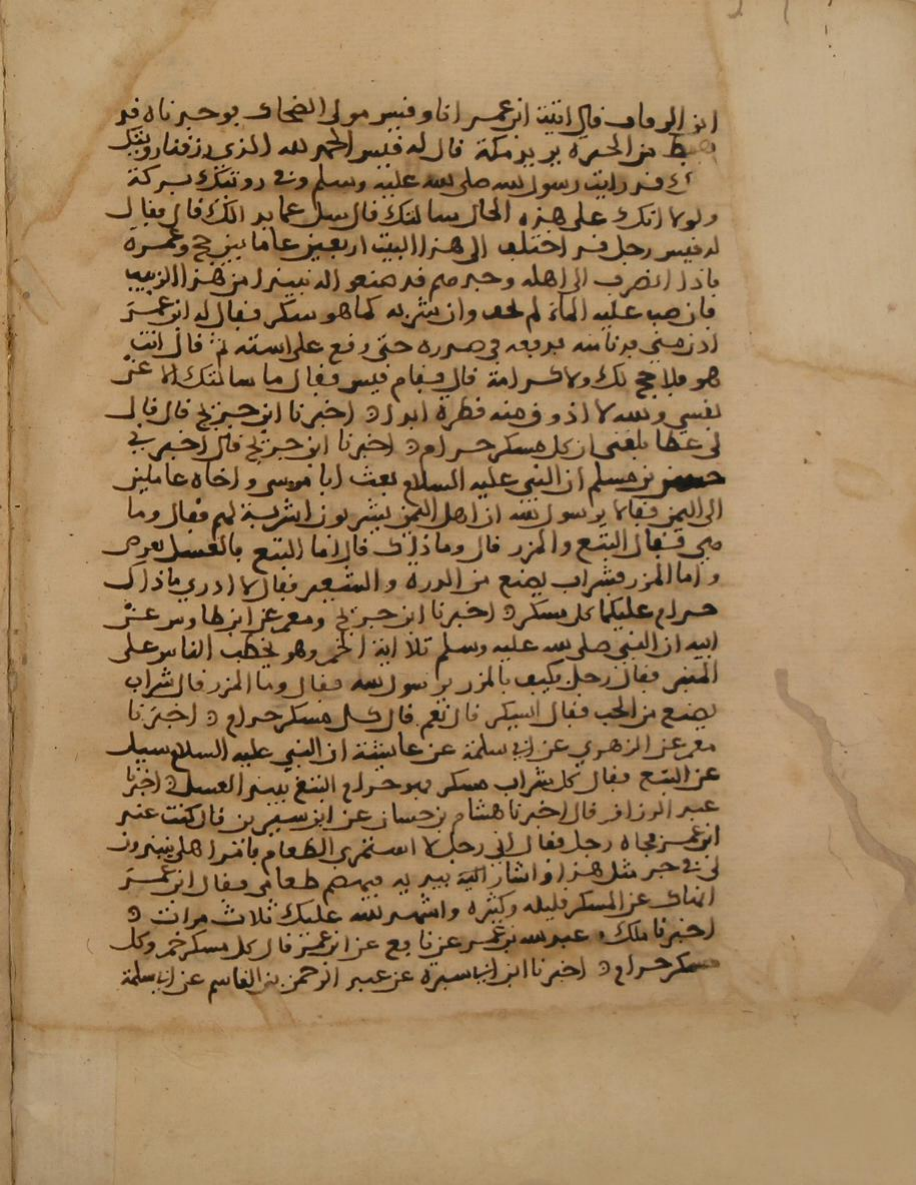 ابن الرماف قال اتيت ابن عمر انا وقيس مولى الضحاك فوجدناه قد
هبط من الجمرة يريد مكة قال له قيس الحمد لله الذي رزقنا رويتك
انك قد رايت رسول الله صلى الله عليه وسلم وفي رويتك بركة
ولولا انك على هذه الحال سالتك قال سل عما بدا لك قال فقال
له قيس رجل قد اختلف الى هذا البيت اربعين عاما بين حج وعمرة
فاذا انصرف الى اهله وجدهم قد صنعوا له نبيذا من هذا الزبيب
فان صب عليه الماء لم يخف وان شربه كما هو سكر فقال له ابن عمر
ادن مني فدنا منه فدفعه في صدره حتى وقع على استه ثم قال انت
هو فلا حج لك ولا كرامة قال فقام قيس فقال ما سالتك الا عن
نفسي والله لا اذوق منه قطرة ابدا ۞ اخبرنا ابن جريج قال قال
لي عطا بلغني ان كل مسكر حرام ۞ اخبرنا ابن جريج قال اخبرني
حسن بن مسلم ان النبي عليه السلام بعث ابا موسى واخاه عاملين
الى اليمن فقالا يرسول الله ان اهل اليمن يشربون اشربة لهم فقال وما
هي فقال البتع والمزر قال وما ذلك قال اما البتع بالعسل يعرص
واما المزر فشراب يصنع من الذرة والشعير فقال لا ادري ما ذاك
حرام عليكما كل مسكر ۞ اخبرنا ابن جريج ومعمر عن ابن طاوس عن
ابيه ان النبي صلى الله عليه وسلم تلا اية الخمر وهو يخطب الناس على
المنبر فقال رجل فكيف بالمزر يرسول الله فقال وما المزر قال شراب
يصنع من الحب فقال ايسكر قال نعم قال كل مسكر حرام ۞ اخبرنا
معمر عن الزهري عن ابي سلمة عن عايشة ان النبي عليه السلام سيل
عن البتع فقال كل شراب مسكر فهو حرام البتع نبيذ العسل ۞ اخبرنا
عبد الرزاق قال اخبرنا هشام بن حسان عن ابن سيرين قال كنت عند
ابن عمر فجاه رجل فقال اني رجل لا استمري الطعام فامر اهلي ينبذون
لي في جر مثل هذا واشار اليه بيديه فيهضم طعامي فقال ابن عمر
انهاك عن المسكر قليله وكثيره واشهد الله عليك ثلاث مرات ۞
اخبرنا ملك عبد الله بن عمر عن نافع عن ابن عمر قال كل مسكر خمر وكل
مسكر حرام ۞ اخبرنا ابن ابي سبرة عن عبد الرحمن بن القاسم عن ابي سلمة